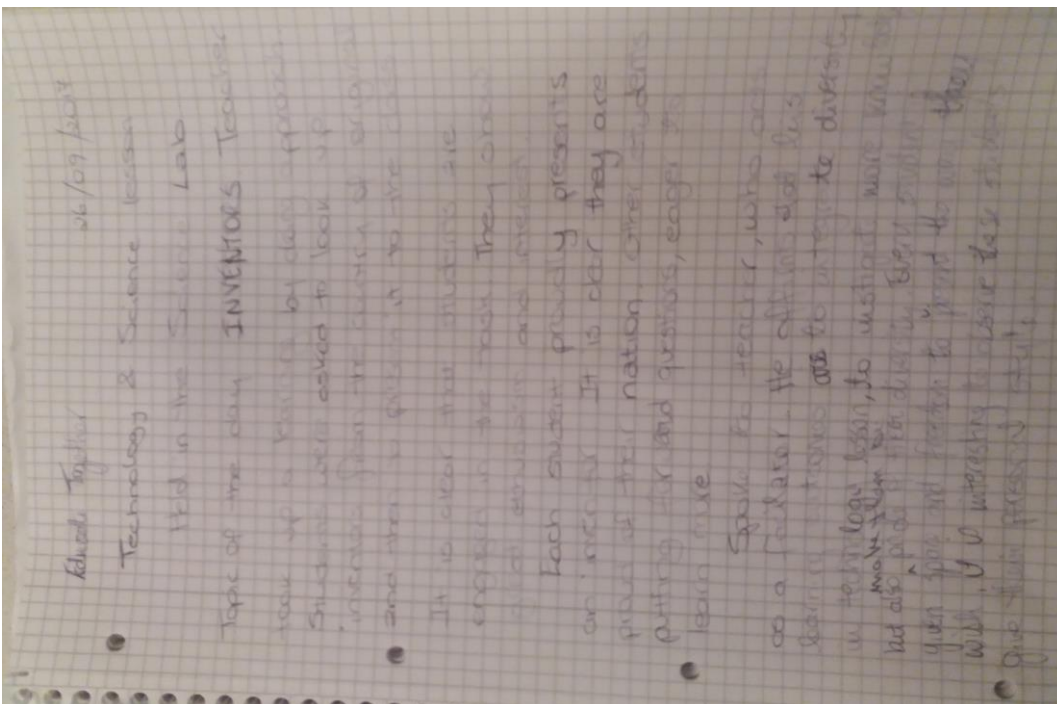 Educate Together 26/09/2017
Technology & Science lesson
Held in the Science Lab
Topic of the day INVENTORS Teacher
took up a learning by doing approach
Students were asked to look up
inventors from the country of origin
and then present it to the class
It is clear that students are
engaged in the task They show
great enthusiasm and interest.
Each student proudly presents
an inventor. It is clear they are
proud of their nation other students
putting forward questions, eager to
learn more
Spoke to teacher, who acts
as a facilitator. He affirms that his
learning intentions are to integrate diversity
in technology lesson, to instigate more knowledge
but also make them proud of their diversity. Every student is
given space and freedom to present the way they
wish, it is interesting to observe these students
give their personal